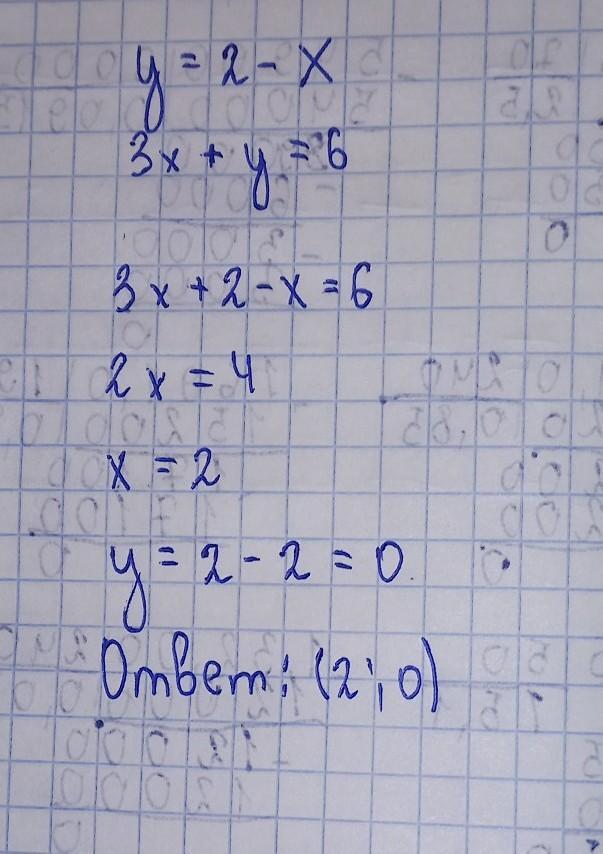 y = 2 - x
3x + y = 6
3x + 2 - x = 6
2x = 4
x = 2
y = 2 - 2 = 0
Ответ: (2; 0)